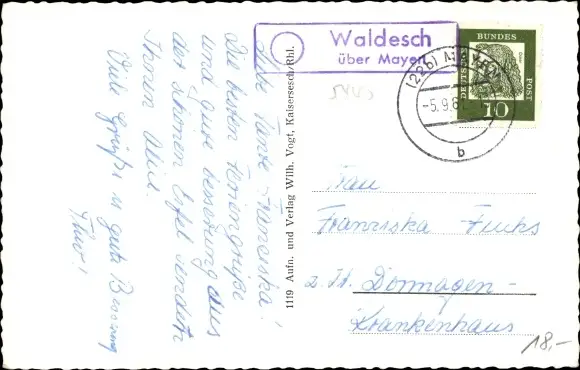 Waldesch
über Mayen
DEUTSCHE
BUNDES
POST
10
(22b) MAYEN
-5.9.6
b
5443
Liebe Tante Franziska!
Die besten Feriengrüße
und gute Besserung aus
der schönen Eifel sendet
Ihnen Alice.
Viele Grüße u gute Besserung
1119 Aufn. und Verlag Wilh. Vogt, Kaisersesch/Rhl.
Frau
Franziska Fuchs
z. Zt. Dormagen-
Krankenhaus
18,-